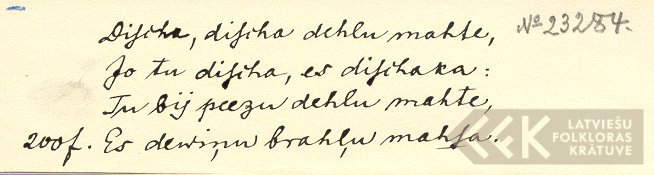 Discha, discha dehlu mahte, № 23284.
Jo tu discha, es dischaka:
Tu bij peezu dehlu mahte,
200f. Es dewiņu brahļu mahsa.
LATVIEŠU
FOLKLORAS
KRĀTUVE